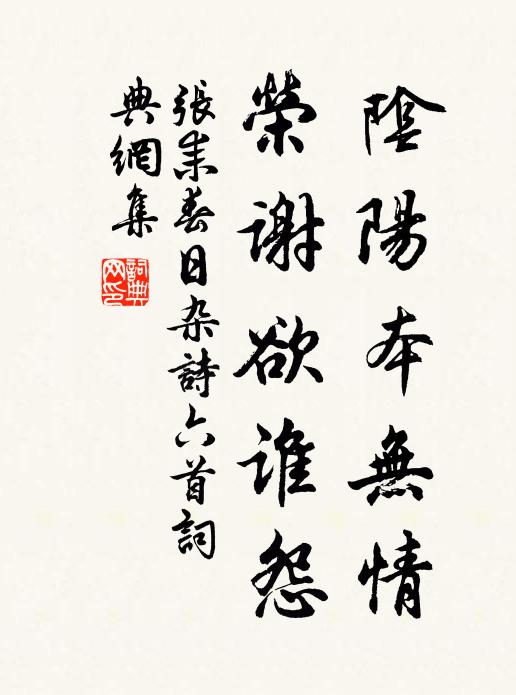 陰陽本無情
榮謝欲誰怨
張耒春日杂詩六首詞
典網集
詞典
网印